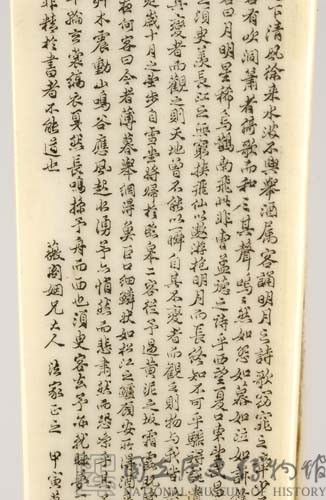 下清風徐來水波不興舉酒属客誦明月之詩歌窈窕之章少
有吹洞簫者倚歌而和之其聲嗚嗚然如怨如慕如泣如訴
曰月明星稀烏鵲南飛此非曹孟德之詩乎西望夏口東望
之須臾羨長江之無窮挾飛仙以遨游抱明月而長終知不可乎驟得
其變者而觀之則天地曾不能以一瞬自其不變者而觀之則物与我皆
是歲十月之望步自雪堂將歸於臨皋二客從予過黃泥之坂霜露
如何客曰今者薄暮舉網得魚巨口細鱗狀如松江之鱸顧安所得
草木震動山鳴谷應風起水湧予亦悄然而悲肅然而恐凜乎其
輪玄裳縞衣戛然長鳴掠予舟而西也須臾客去予亦就睡
非精於書者不能道也
薇閣姻兄大人 法家正之 甲寅
國立歷史博物館
NATIONAL MUSEUM OF HISTORY